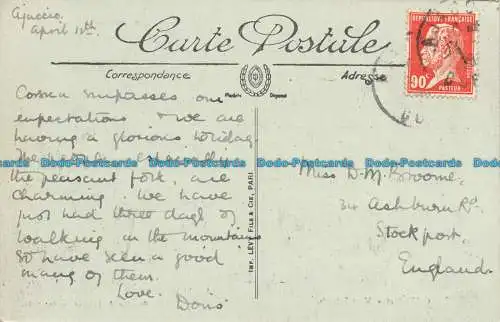 Ajaccio
April 12th
Carte Postale
Correspondance
Adresse
REPUBLIQUE FRANÇAISE
90c
PASTEUR
Corsica surpasses our
expectations & we are
having a glorious holiday
The people, especially
the peasant folk, are
charming. We have
just had three days of
walking in the mountains
so have seen a good
many of them.
Love. Doris
Miss D. M. Broome,
34 Ashburn Rd.
Stockport.
England.
IMP. LÉVY FILS & CIE, PARIS
Postcards Postcards Postcards Postcards Postcards
Postcards Postcards Postcards Postcards Postcards